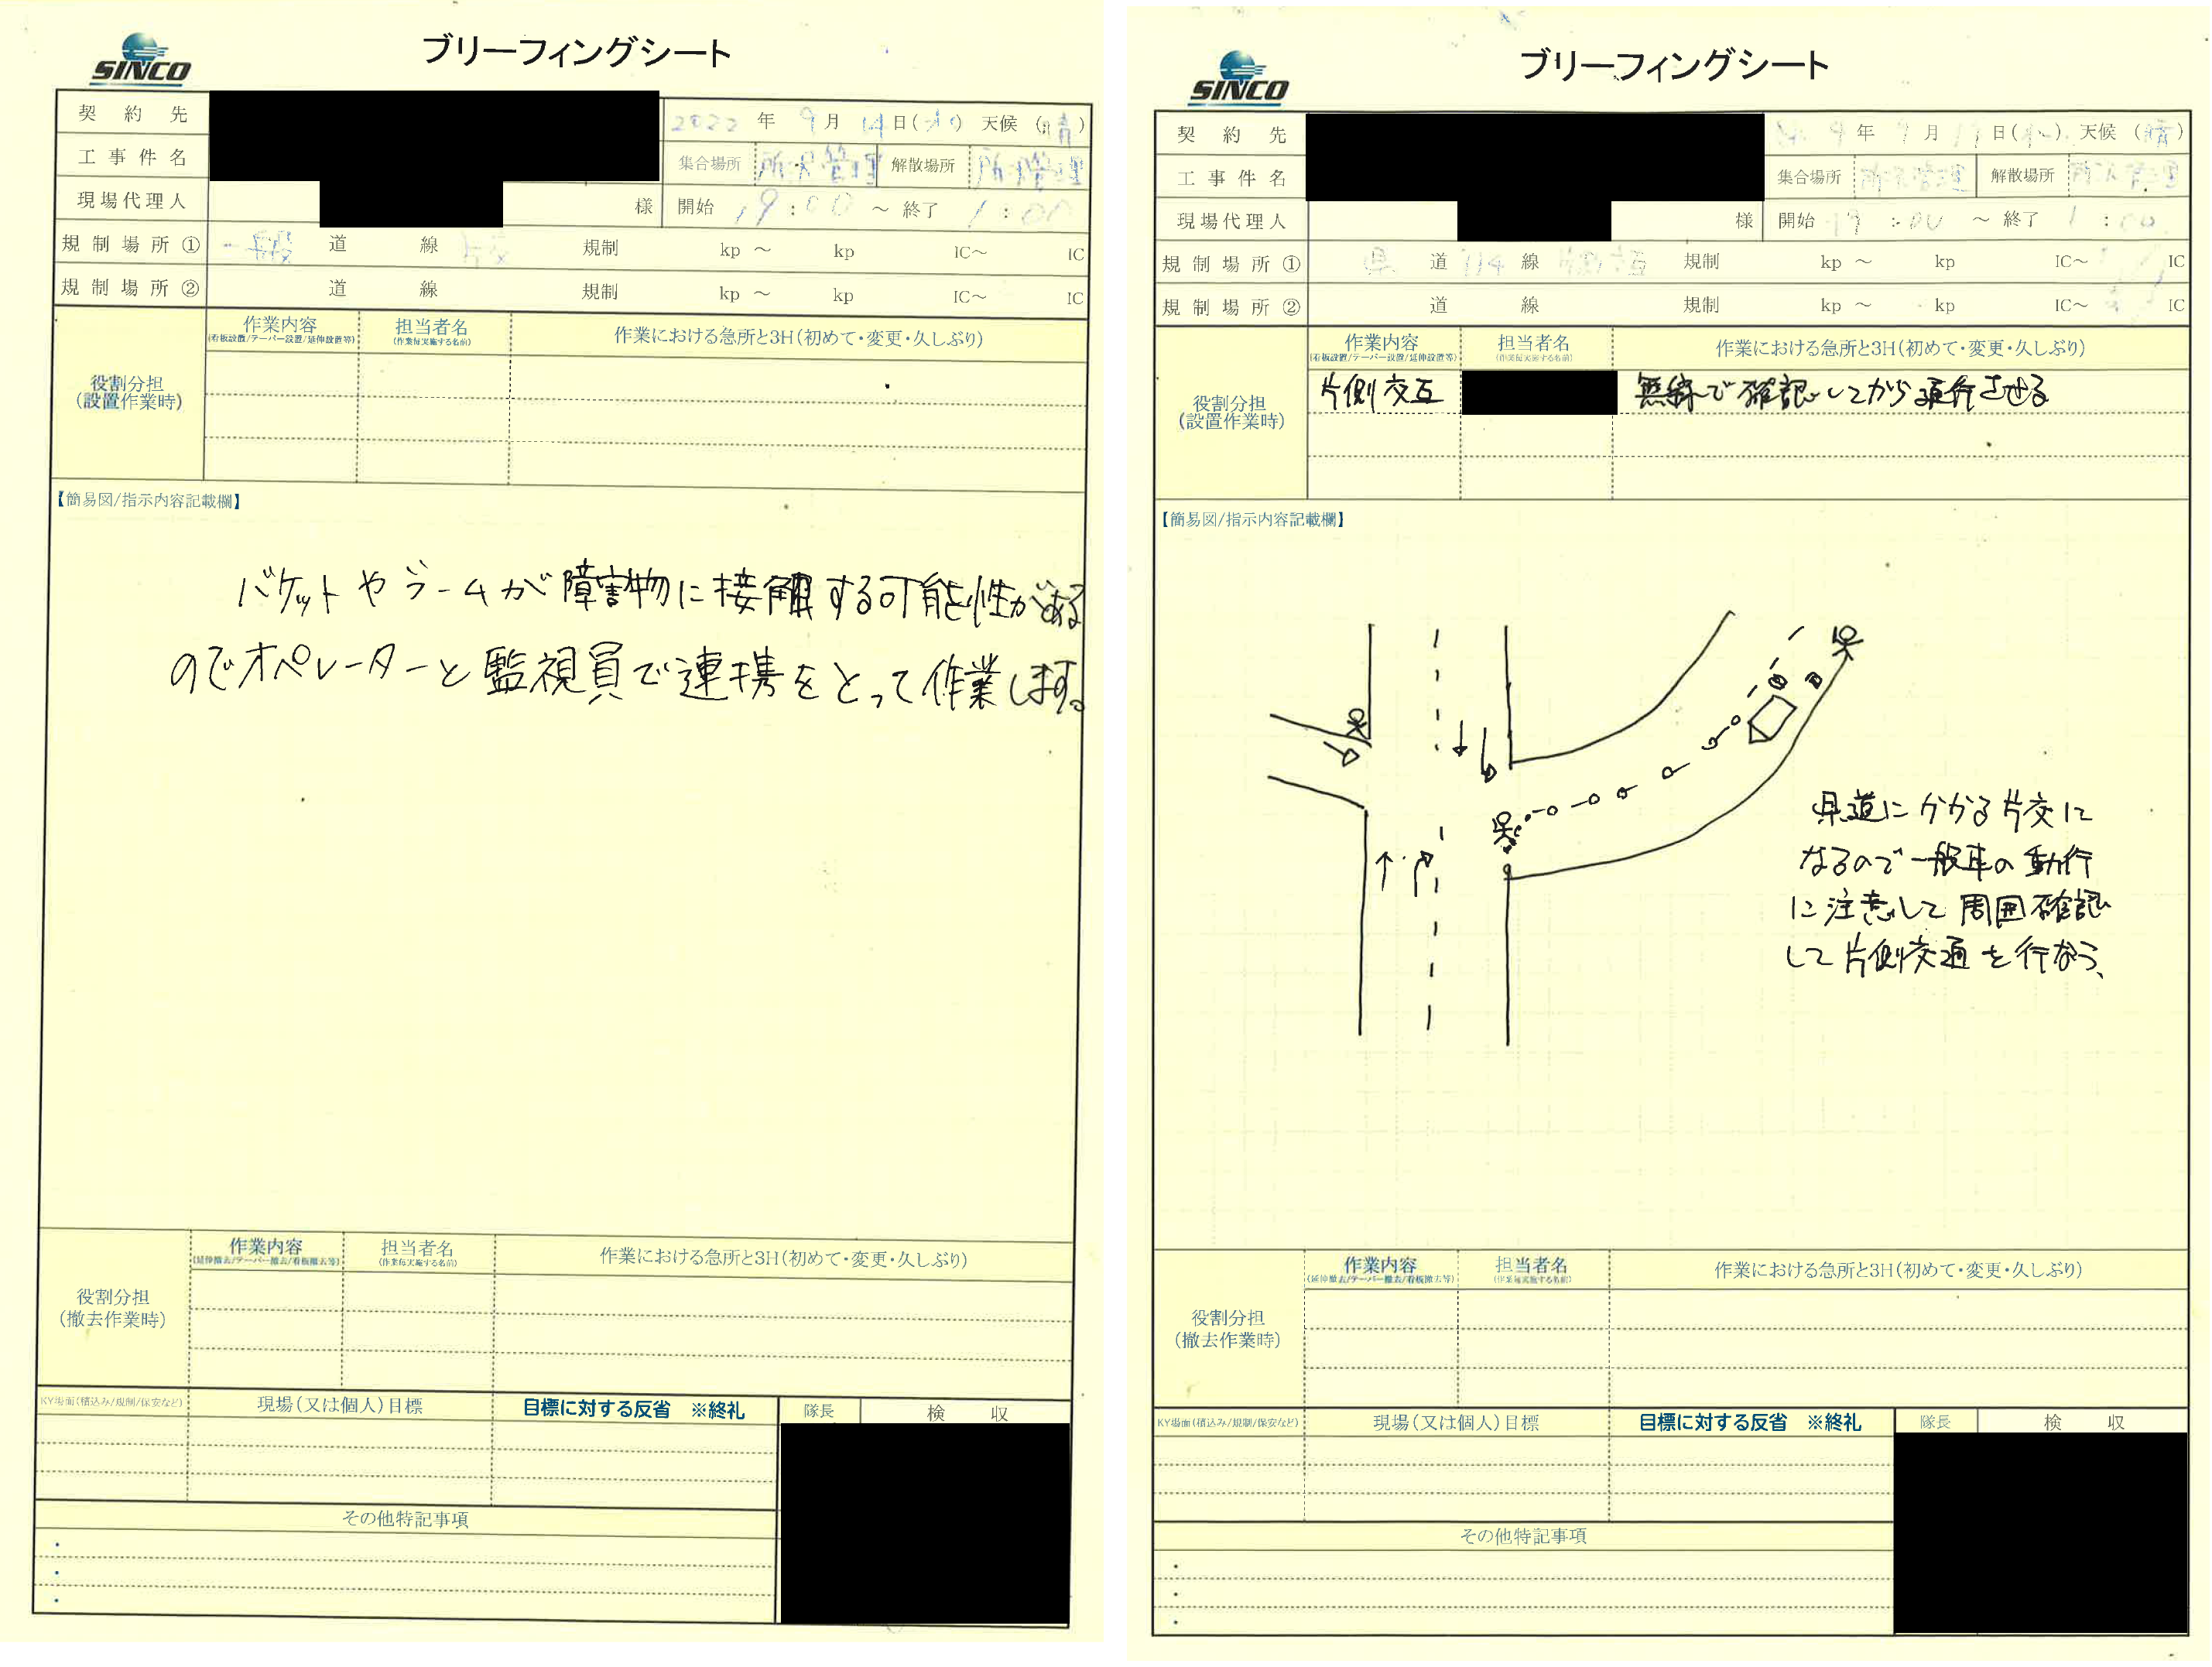 SINCO
ブリーフィングシート
契約先
2022年9月14日(水) 天候(晴)
工事件名
集合場所 所沢管理 解散場所 所沢管理
現場代理人 様 開始 19:00 ～ 終了 1:00
規制場所① 一般 道 線 片交 規制 kp ～ kp IC～ IC
規制場所② 道 線 規制 kp ～ kp IC～ IC
役割分担
(設置作業時)
作業内容
(看板設置/テーパー設置/延伸設置等)
担当者名
(作業毎実施する名前)
作業における急所と3H(初めて・変更・久しぶり)
【簡易図/指示内容記載欄】
バケットやブームが障害物に接触する可能性がある
のでオペレーターと監視員で連携をとって作業します。
役割分担
(撤去作業時)
作業内容
(延伸撤去/テーパー撤去/看板撤去等)
担当者名
(作業毎実施する名前)
作業における急所と3H(初めて・変更・久しぶり)
KY場面(積込み/規制/保安など) 現場(又は個人)目標 目標に対する反省 ※終礼 隊長 検収
その他特記事項
・
・
・
SINCO
ブリーフィングシート
契約先
年 月 日(水) 天候(晴)
工事件名
集合場所 所沢管理 解散場所 所沢管理
現場代理人 様 開始 19:00 ～ 終了 1:00
規制場所① 県 道 114 線 片側交互 規制 kp ～ kp IC～ IC
規制場所② 道 線 規制 kp ～ kp IC～ IC
役割分担
(設置作業時)
作業内容
(看板設置/テーパー設置/延伸設置等)
担当者名
(作業毎実施する名前)
作業における急所と3H(初めて・変更・久しぶり)
片側交互 無線で確認してから通行させる
【簡易図/指示内容記載欄】
県道にかかる片交に
なるので一般車の動行
に注意して周囲確認
して片側交通を行なう、
役割分担
(撤去作業時)
作業内容
(延伸撤去/テーパー撤去/看板撤去等)
担当者名
(作業毎実施する名前)
作業における急所と3H(初めて・変更・久しぶり)
KY場面(積込み/規制/保安など) 現場(又は個人)目標 目標に対する反省 ※終礼 隊長 検収
その他特記事項
・
・
・